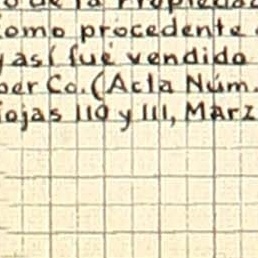 o de la Propiedad
como procedente
y así fué vendido
ber Co. (Acta Núm.
Fojas 110 y 111, Marz